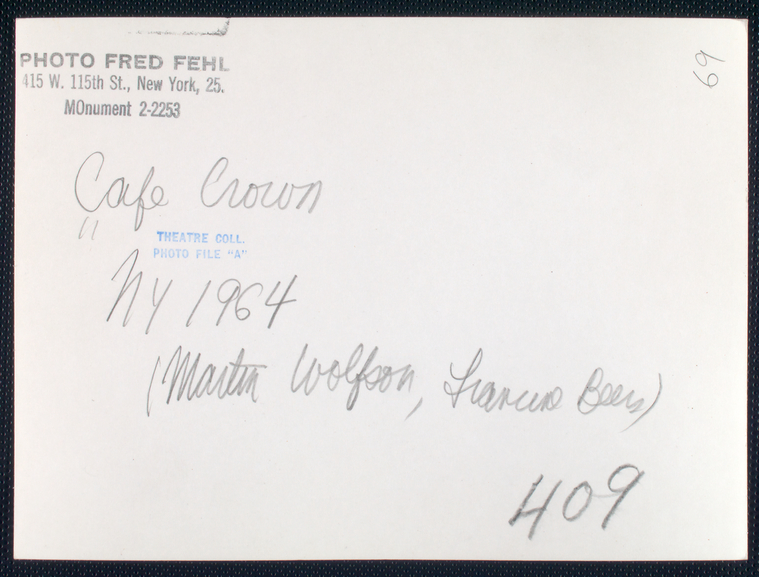 PHOTO FRED FEHL
415 W. 115th St., New York, 25.
MOnument 2-2253
69
Cafe Crown
"
THEATRE COLL.
PHOTO FILE "A"
NY 1964
(Martin Wolfson, Francine Beers)
409